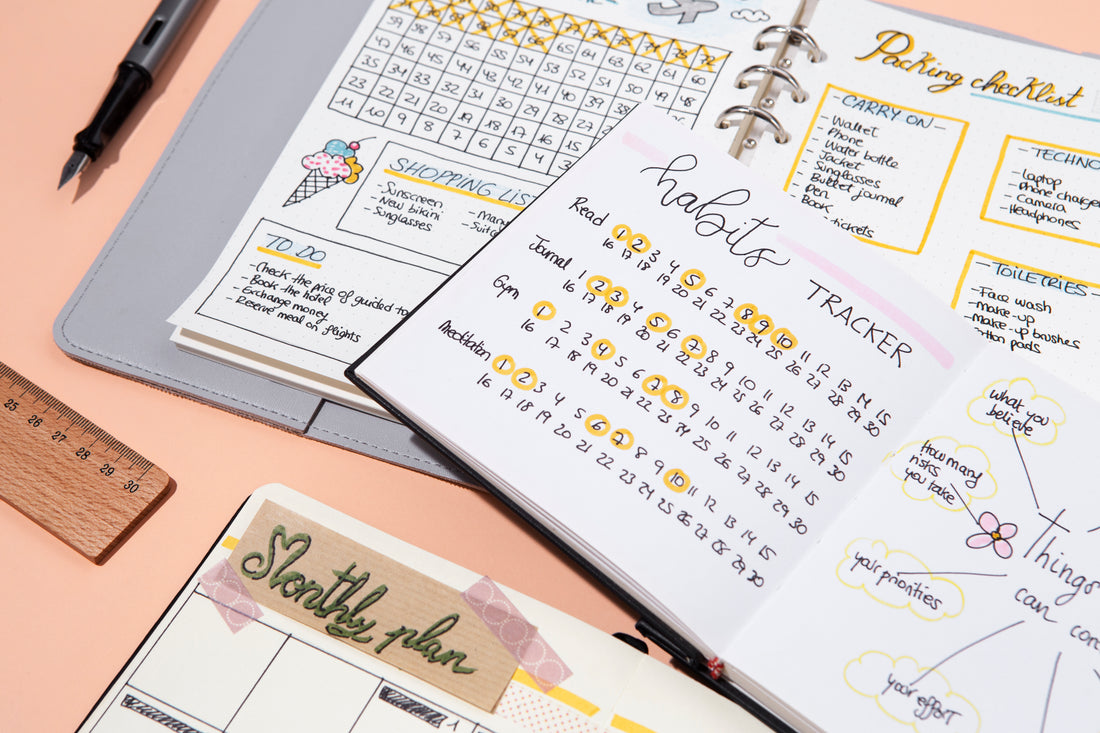 59 58 57 56 55 54 53 52 51 50 49 48
11 10 9 8 7 6 5 4 3
SHOPPING LIST
- Sunscreen
- New bikini
- Sunglasses
TO DO
- Check the price of guided to
- Book the hotel
- Exchange money
- Reserve meal on flights
Packing checklist
- CARRY ON -
- Wallet
- Phone
- Water bottle
- Jacket
- Sunglasses
- Bullet journal
- Pen
- Book
tickets
- TECHNO
- laptop
- Phone charge
- Camera
- Headphones
- TOILETRIES -
- Face wash
- make-up
- make-up brushes
pads
habits
TRACKER
Read 1 2 3 4 5 6 7 8 9 10 11 12 13 14 15
16 17 18 19 20 21 22 23 24 25 26 27 28 29 30
Journal 1 2 3 4 5 6 7 8 9 10 11 12 13 14 15
16 17 18 19 20 21 22 23 24 25 26 27 28 29 30
Gym 1 2 3 4 5 6 7 8 9 10 11 12 13 14 15
16 17 18 19 20 21 22 23 24 25 26 27 28 29 30
Meditation 1 2 3 4 5 6 7 8 9 10 11 12 13 14 15
16 17 18 19 20 21 22 23 24 25 26 27 28 29 30
what you
believe
How many
risks
you take
your priorities
your effort
Things
can
25 26 27 28 29 30
Monthly plan
1